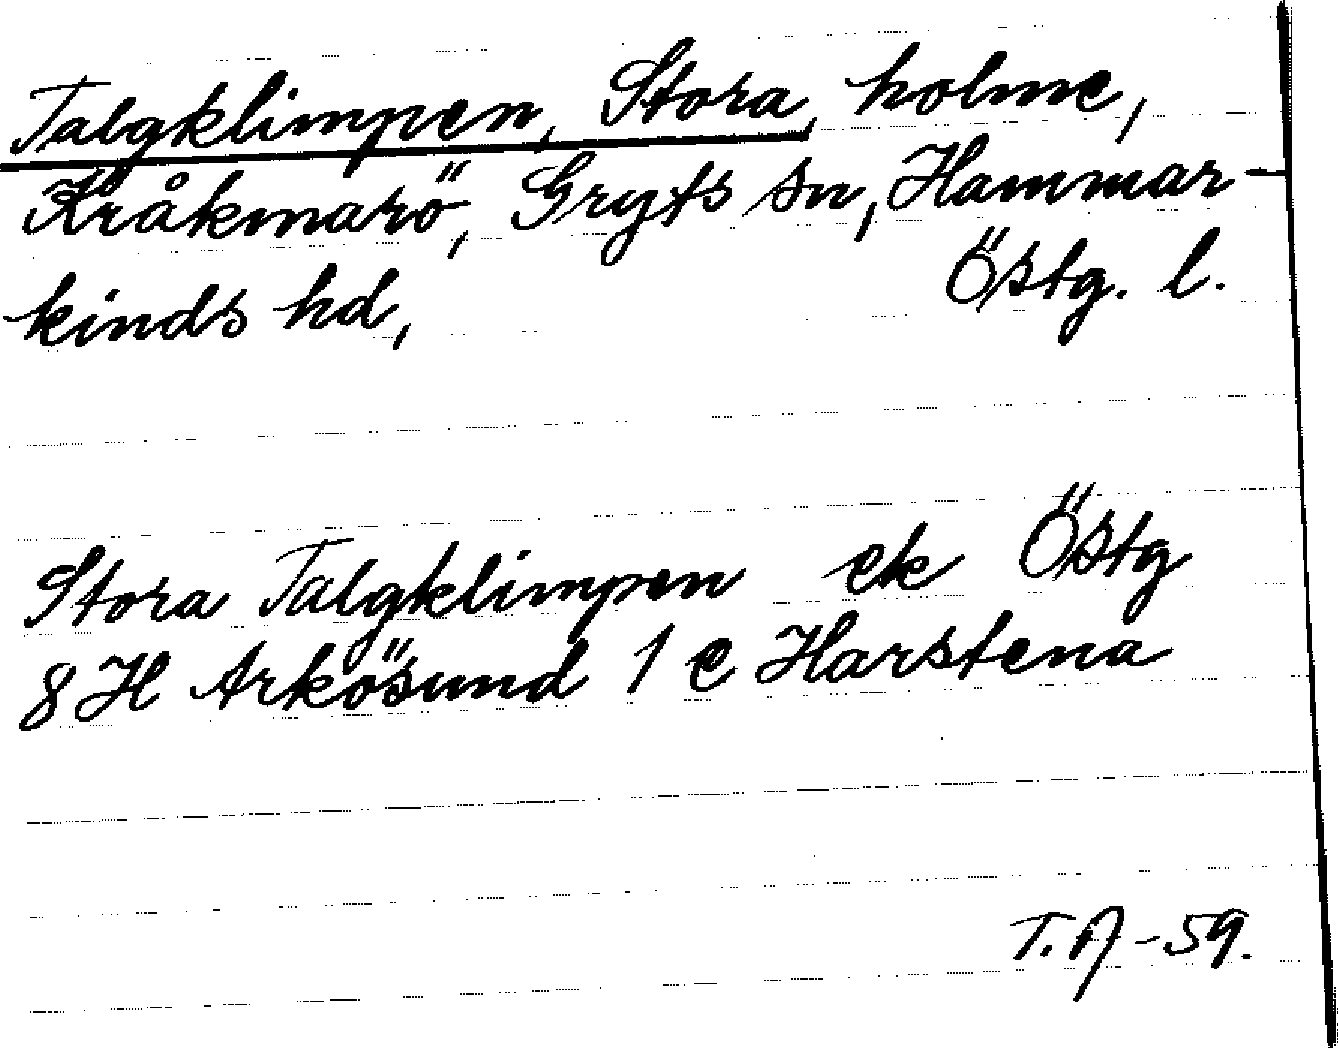 Talgklimpen, Stora, holme,
Kråkmarö, Gryts sn, Hammar-
kinds hd, Östg. l.
Stora Talgklimpen ek Östg
8 H Arkösund 1 e Harstena
T. A -59.